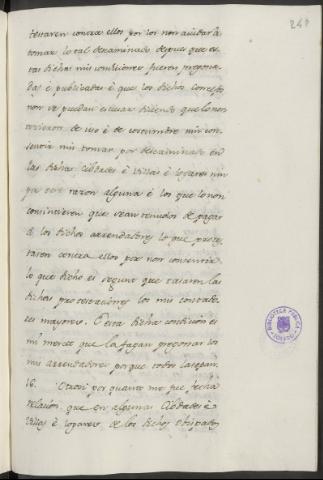 248
testaren contra ellos por lo non ayudar a
tomar lo tal descaminado despues que es-
tas dichas mis condiciones fueren pregona-
das è publicadas è que los dichos concejos
non se puedan escusar diciendo que lo non
ovieron de uso è de costumbre nin con-
sentir nin tomar por descaminado en
las dichas Cibdades è Villas è logares nin
por otra razon alguna è los que lo non
consintieren que sean tenudos de pagar
à los dichos arrendadores lo que protes-
taren contra ellos por non consentir
lo que dicho es segunt que tasaren las
dichas protestaciones los mis contado-
res mayores. E esta dicha condicion es
mi merced que la fagan pregonar los
mis arrendadores porque todos la sepan.
16. Otrosi por quanto me fue fecha
relacion que en algunas Cibdades è
Villas è logares de los dichos Obispados
BIBLIOTECA PUBLICA